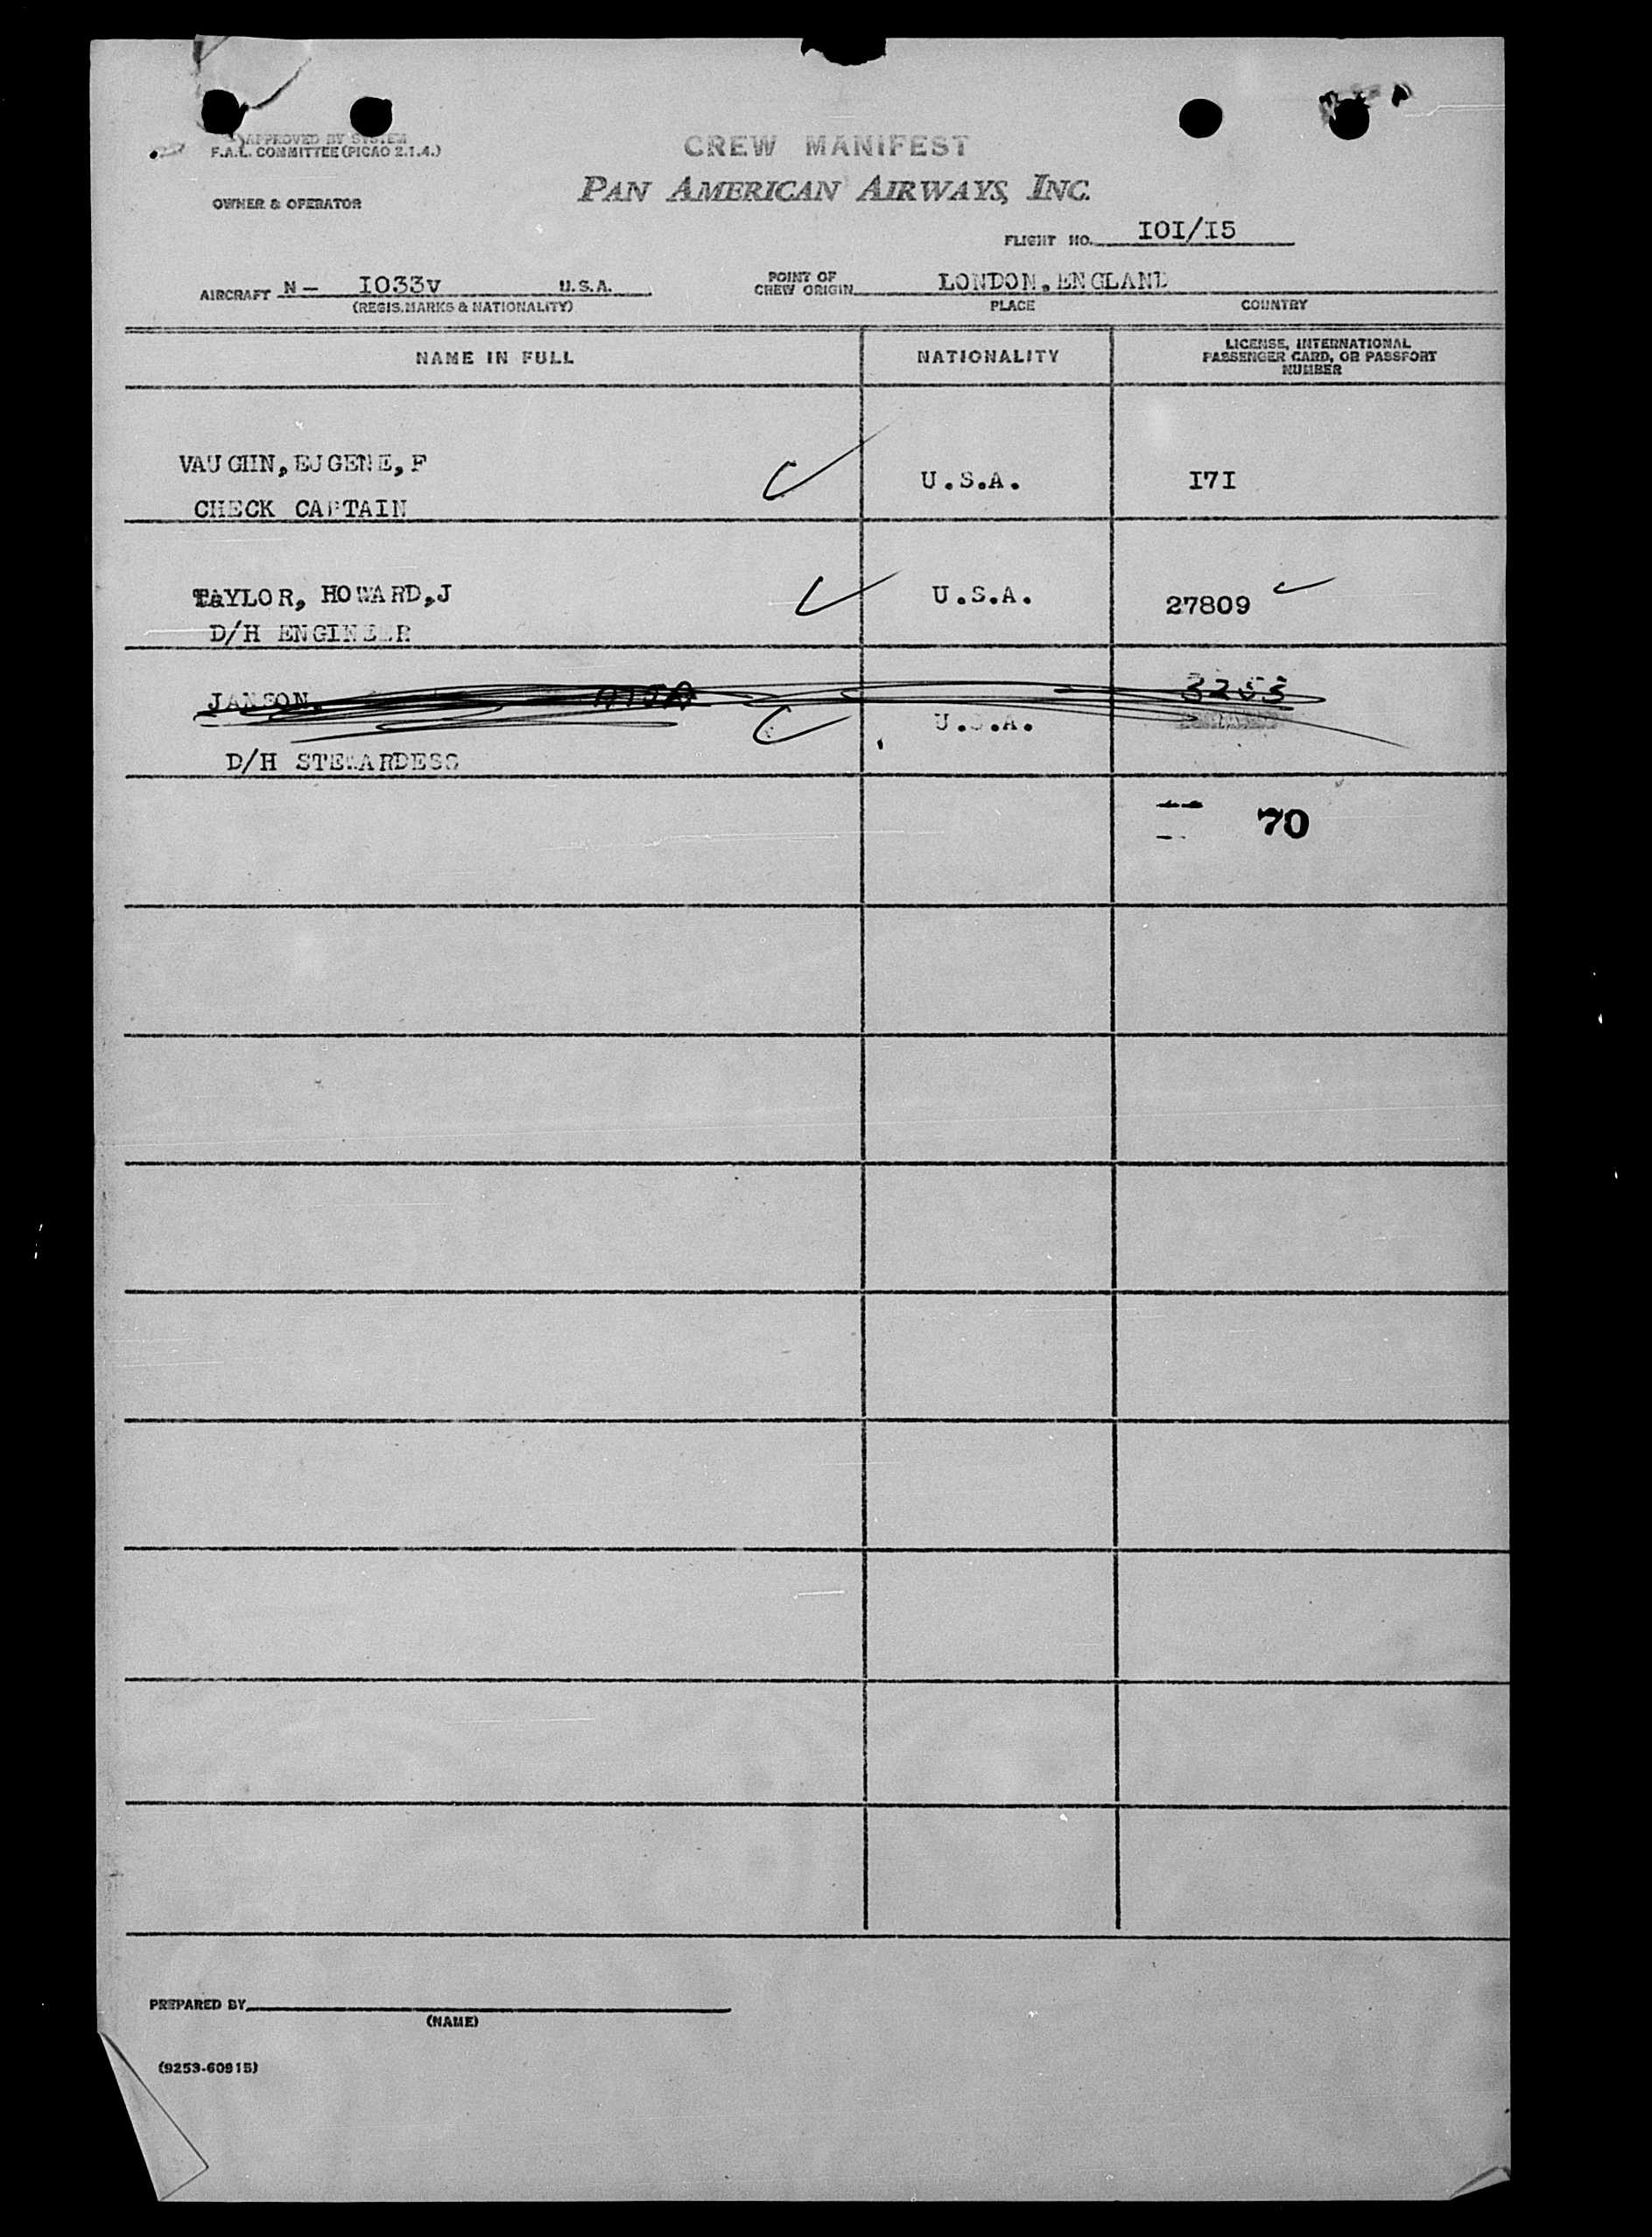 APPROVED BY SYSTEM
F.A.L. COMMITTEE (PICAO 2.1.4.)
CREW MANIFEST
PAN AMERICAN AIRWAYS, INC.
OWNER & OPERATOR
FLIGHT NO. I0I/I5
AIRCRAFT N- I033V U.S.A.
(REGIS. MARKS & NATIONALITY)
POINT OF
CREW ORIGIN LONDON, ENGLAND
PLACE COUNTRY
NAME IN FULL
NATIONALITY
LICENSE, INTERNATIONAL
PASSENGER CARD, OR PASSPORT
NUMBER
VAUGHN, EUGENE, F U.S.A. I7I
CHECK CAPTAIN
TAYLOR, HOWARD, J U.S.A. 27809
D/H ENGINEER
JANSON. 3253
U.S.A.
D/H STEWARDESS
70
PREPARED BY
(NAME)
(9253-60915)